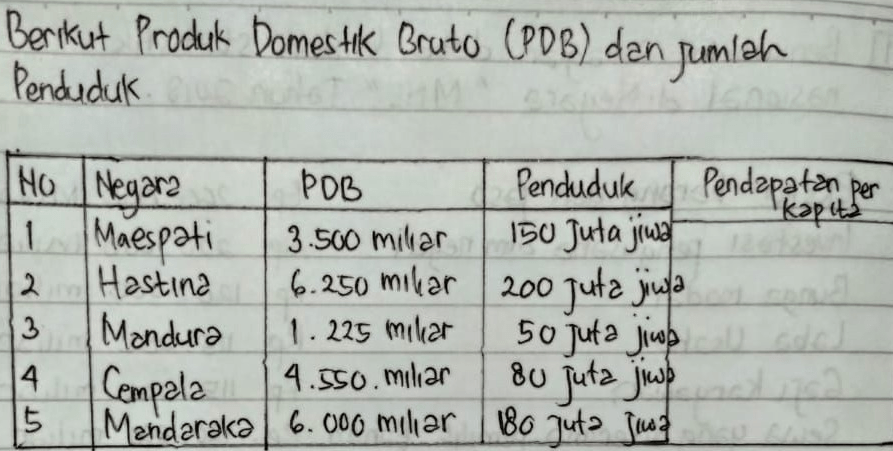 Berikut Produk Domestik Bruto (PDB) dan jumlah
Penduduk.
NO Negara PDB Penduduk Pendapatan per
kapita
1 Maespati 3.500 miliar 150 Juta jiwa
2 Hastina 6.250 miliar 200 juta jiwa
3 Mandura 1.225 miliar 50 juta jiwa
4 Cempala 4.550. miliar 80 juta jiwa
5 Mandaraka 6.000 miliar 180 juta jiwa